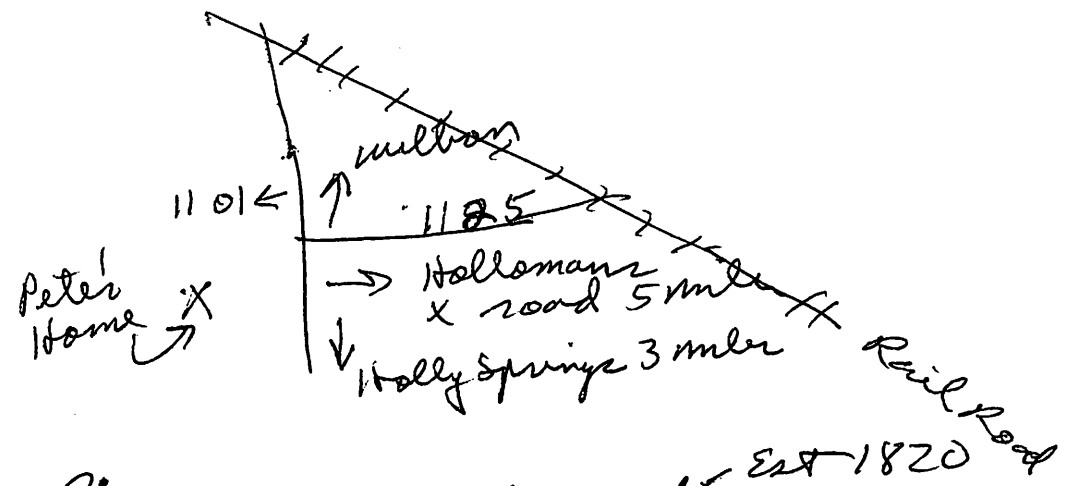 1101 ←
↑
1125
Peter's
Home X
→ Hollomans
X road 5 miles
↓ Holly Springs 3 miles
Rail Road
Est 1820